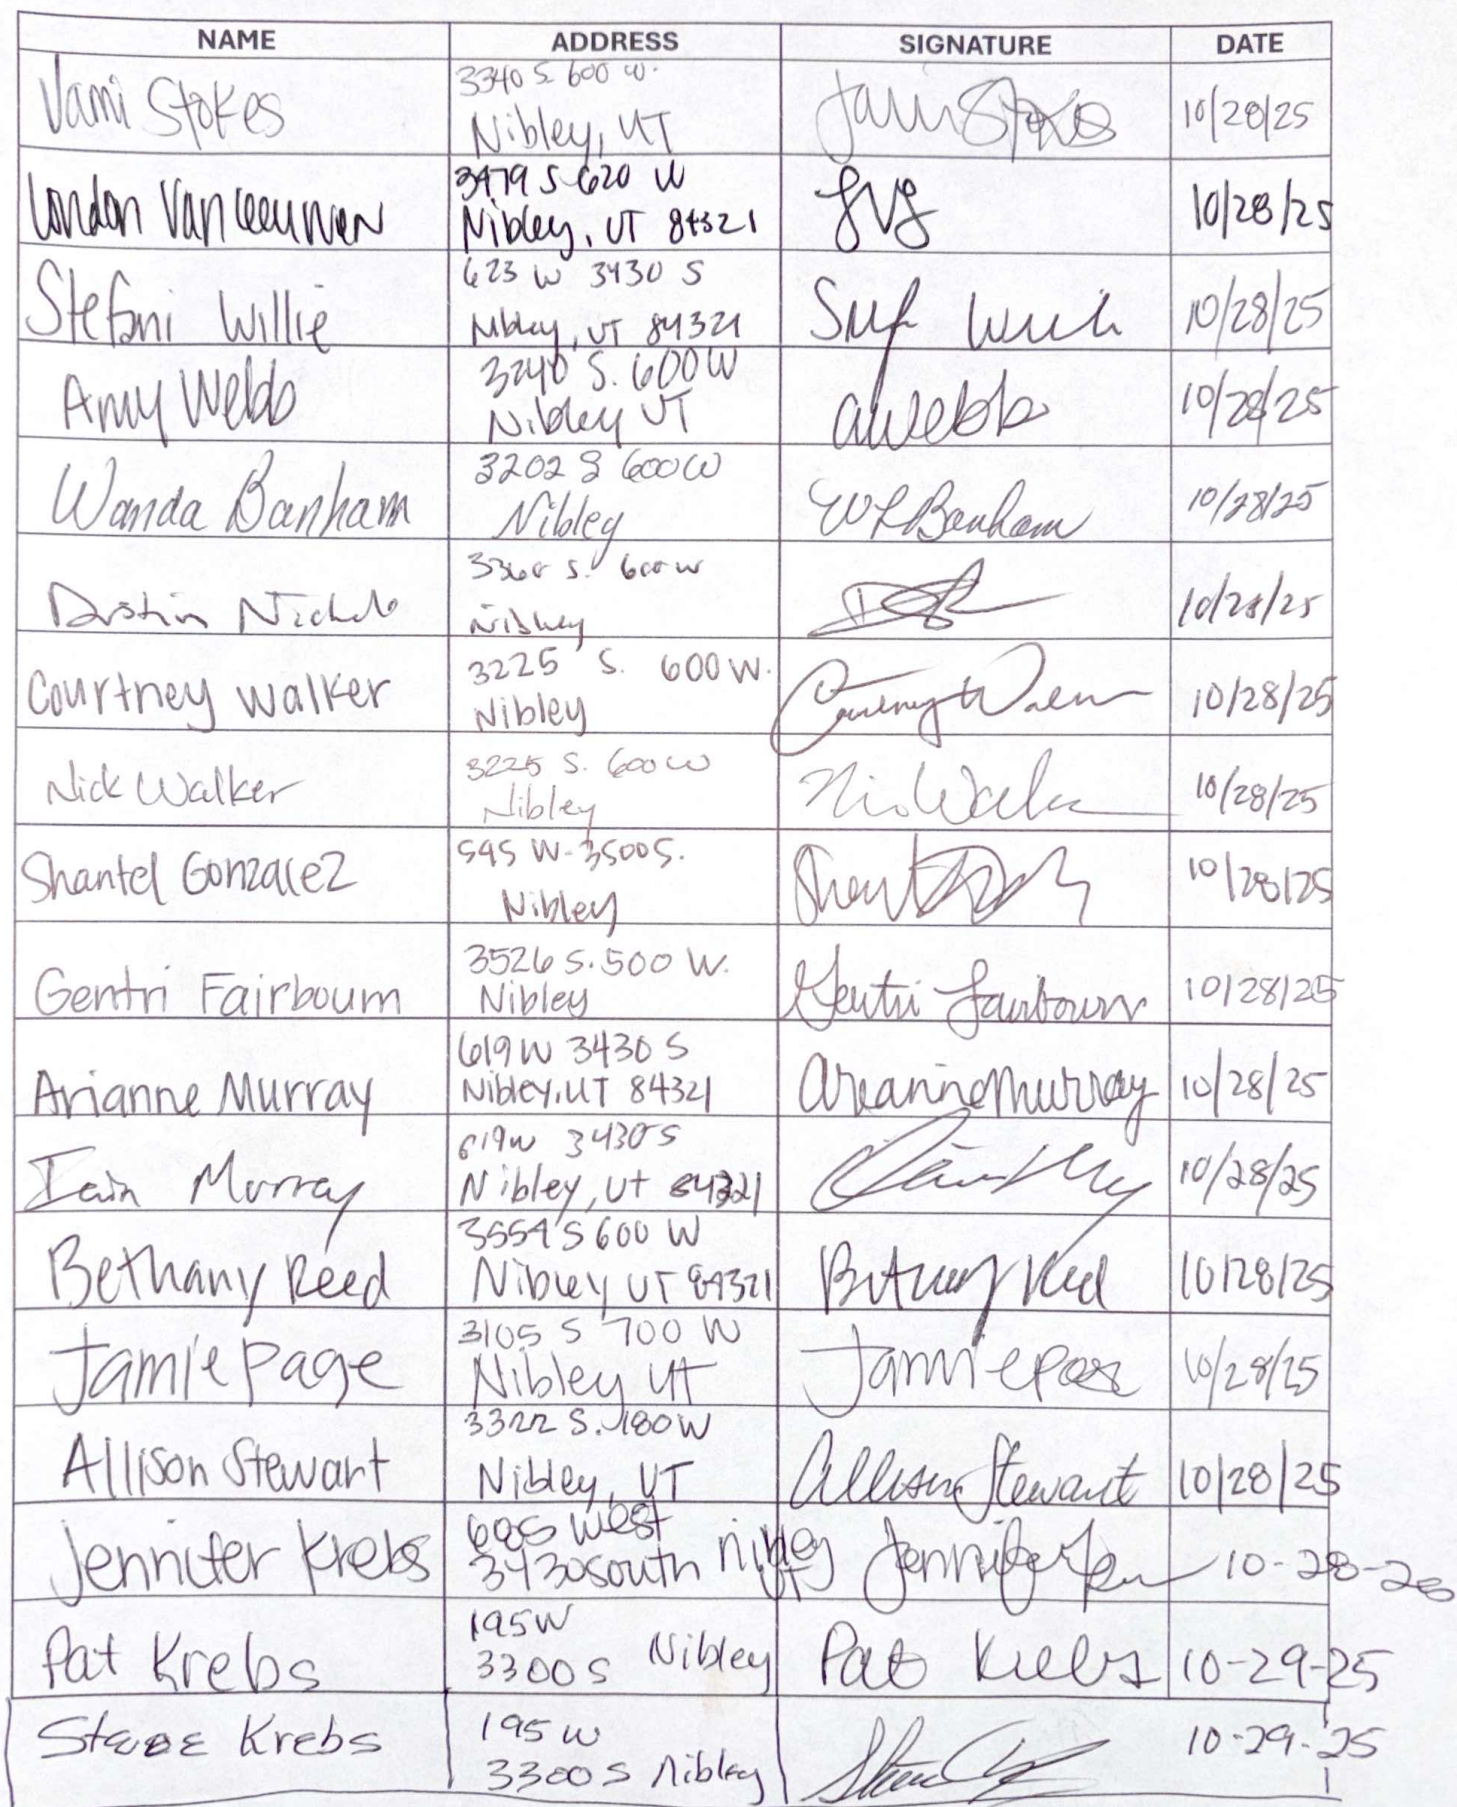 NAME ADDRESS SIGNATURE DATE
Jami Stokes 3340 S. 600 W. Nibley, UT Jami Stokes 10/28/25
London VanLeeuwen 3479 S 620 W Nibley, UT 84321 LVL 10/28/25
Stefani Willie 623 W 3430 S Nibley, UT 84321 10/28/25
Amy Webb 3240 S. 600 W Nibley UT awebb 10/28/25
Wanda Banham 3202 S 600 W Nibley WLBanham 10/28/25
Dustin Nichols S. 600 W Nibley 10/28/25
Courtney Walker 3225 S. 600 W. Nibley Courtney Walker 10/28/25
Nick Walker 3225 S. 600 W Nibley 10/28/25
Shantel Gonzalez 595 W. 3500 S. Nibley 10/28/25
Gentri Fairbourn 3526 S. 500 W. Nibley Gentri Fairbourn 10/28/25
Arianne Murray 619 W 3430 S Nibley, UT 84321 Arianne Murray 10/28/25
Iain Murray 619 W 3430 S Nibley, Ut 84321 10/28/25
Bethany Reed 3554 S 600 W Nibley UT 84321 Bethany Reed 10/28/25
Jamie Page 3105 S 700 W Nibley UT Jamie Page 10/28/25
Allison Stewart 3322 S. 180 W Nibley, UT Allison Stewart 10/28/25
Jennifer Krebs 605 West 3430 South Nibley UT Jennifer 10-28-
Pat Krebs 195 W 3300 S Nibley Pat Krebs 10-29-25
Steve Krebs 195 W 3300 S Nibley 10-29-25